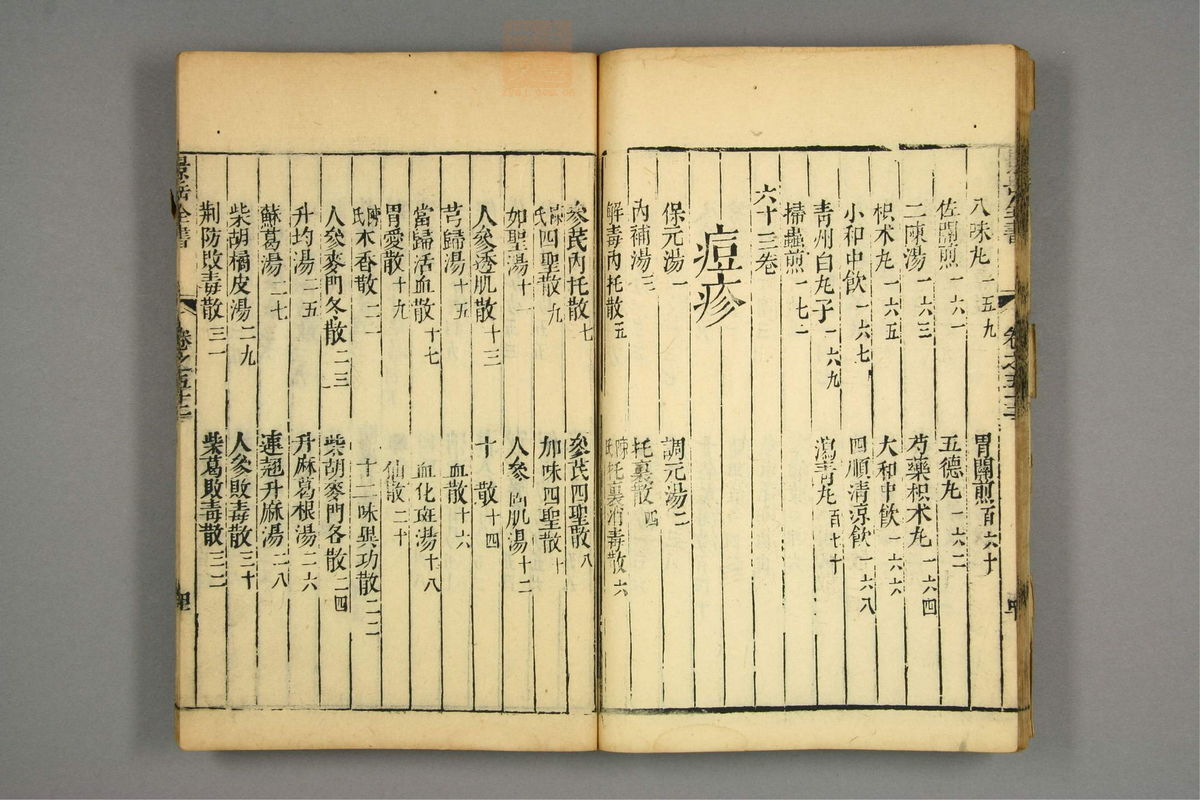 八味丸一五九 胃關煎百六十
佐關煎一六一 五德丸一六二
二陳湯一六三 芍藥枳术丸一六四
枳术丸一六五 大和中飲一六六
小和中飲一六七 四順清凉飲一六八
青州白丸子一六九 瀉青丸百七十
掃蟲煎一七一
六十三卷
痘疹
保元湯一 調元湯二
內補湯三 托裏散四
解毒內托散五 陳氏托裏消毒散六
參芪內托散七 參芪四聖散八
陳氏四聖散九 加味四聖散十
如聖湯十一 人參 肌湯十二
人參透肌散十三 十 散十四
芎歸湯十五 血散十六
當歸活血散十七 血化斑湯十八
胃愛散十九 仙散二十
陳氏木香散二一 十二味異功散二二
人參麥門冬散二三 柴胡麥門冬散二四
升均湯二五 升麻葛根湯二六
蘇葛湯二七 連翹升麻湯二八
柴胡橘皮湯二九 人參敗毒散三十
荆防敗毒散三一 柴葛敗毒散三二
景岳全書 卷之五十二